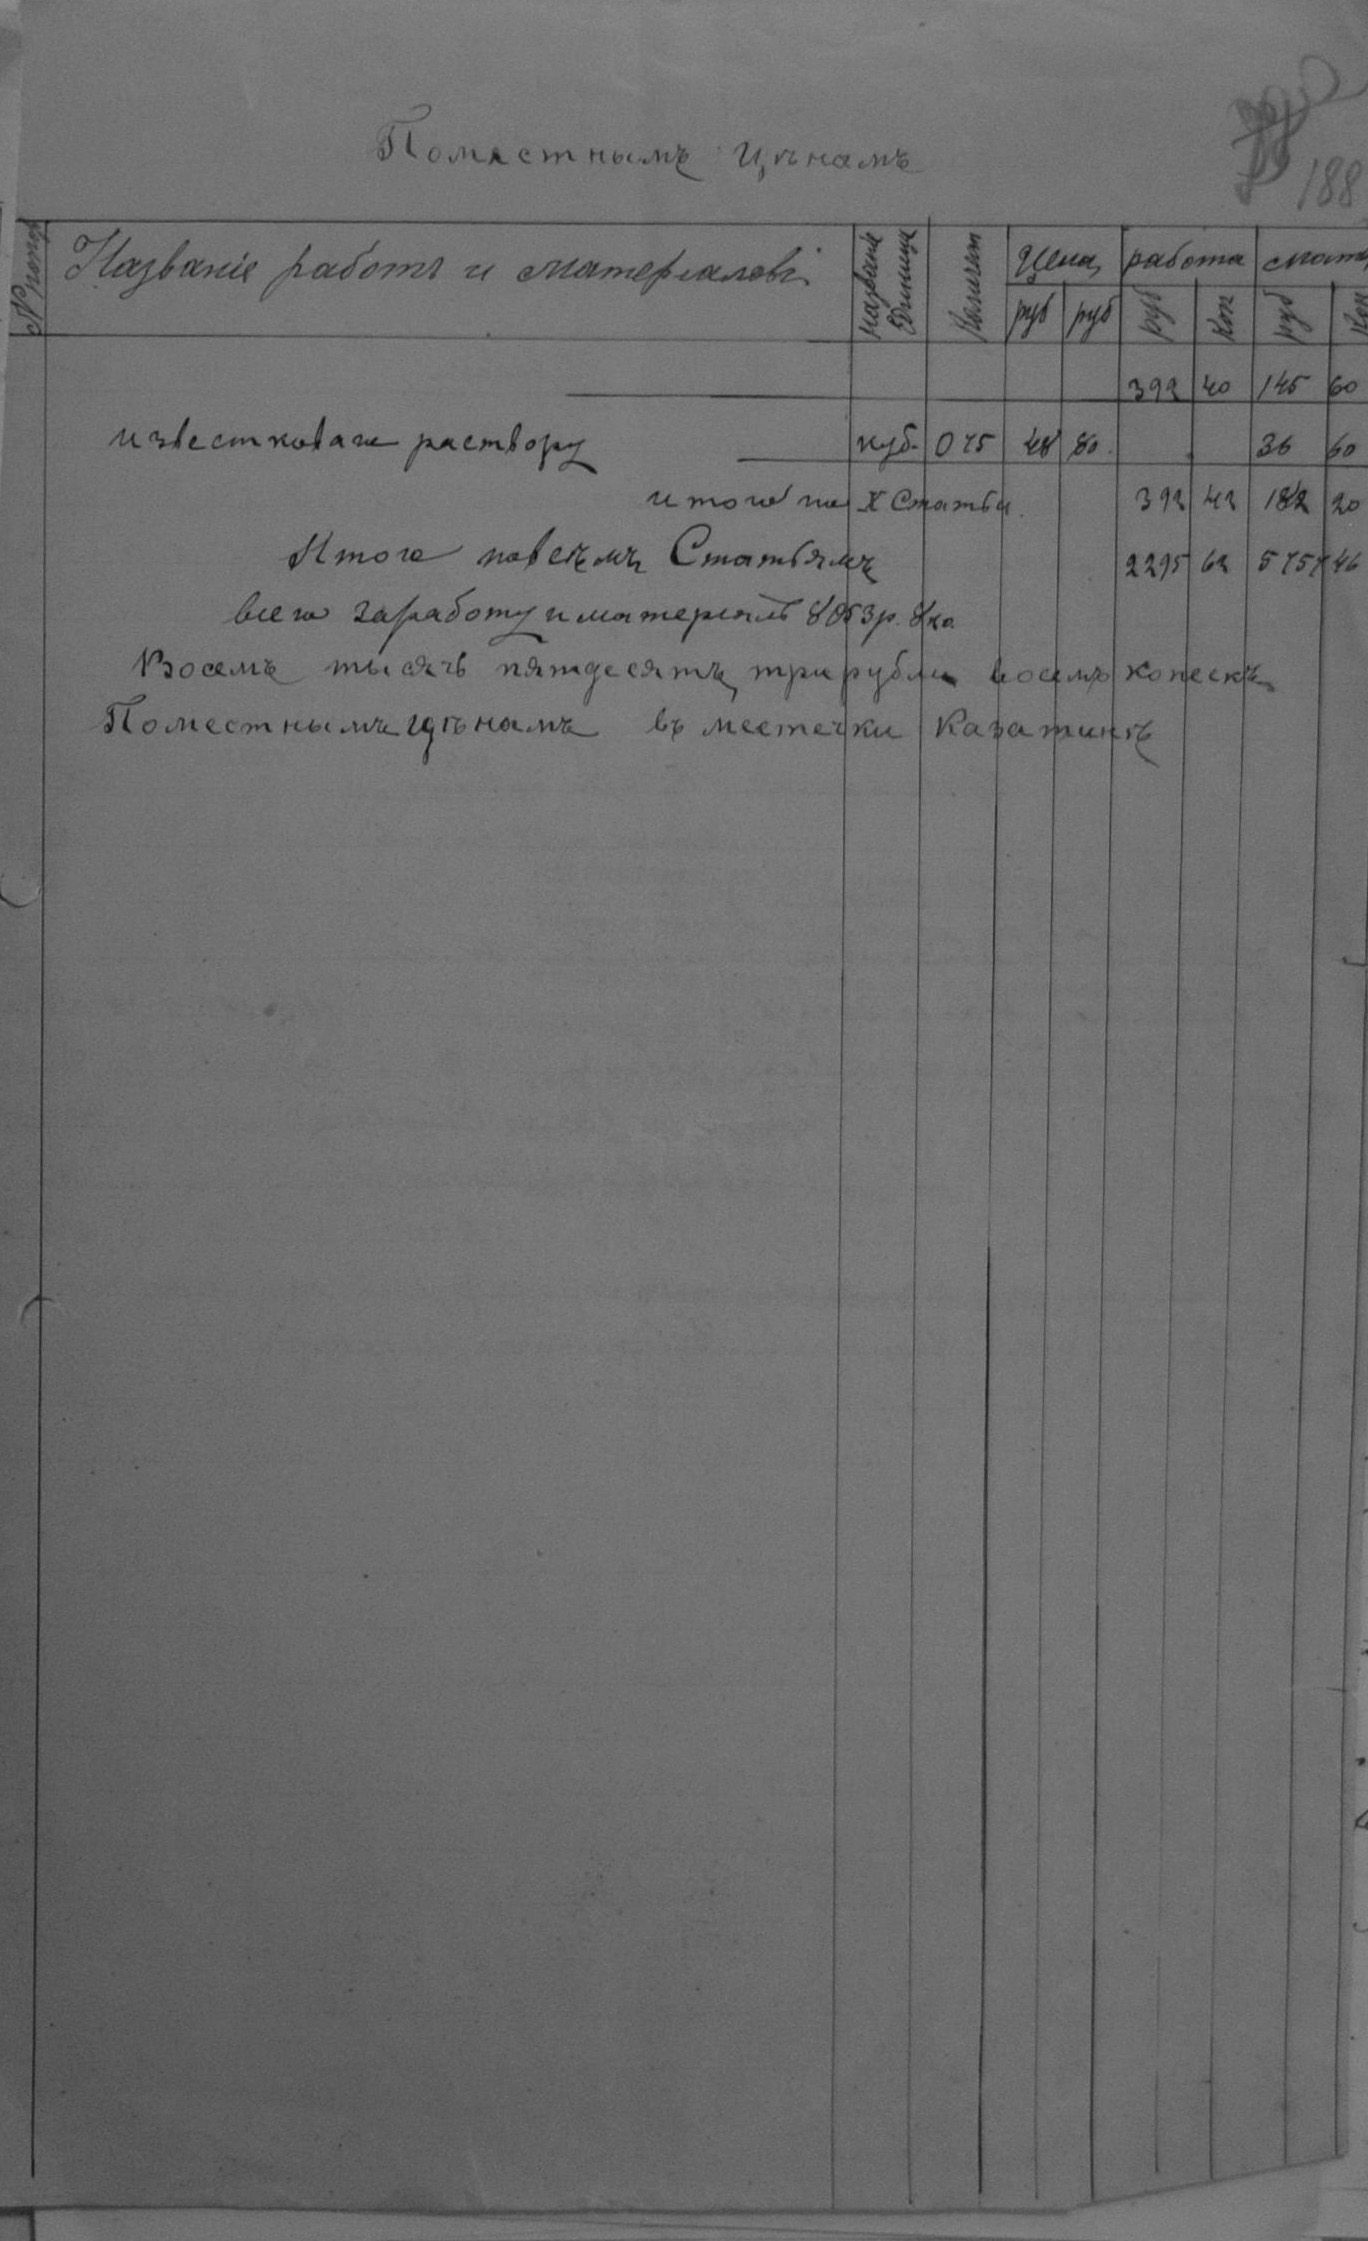 Поместнымъ Цѣнамъ
188
Названіе работъ и матеріаловъ
название
Единиц
Количест
Цена
работа
матер
руб руб руб коп руб коп
392 40 145 60
известковаго раствору куб. 075 48 80 36 60
итого по X Статьи 392 42 182 20
Итого повсемъ Статьямъ 2295 62 5757 46
всего заработу и матерьялъ 8053 р. 8 ко
Восемъ тысячъ пятдесятъ три рубли восемъ копеекъ
Поместнымъ цѣнамъ въ местечки Казатинѣ